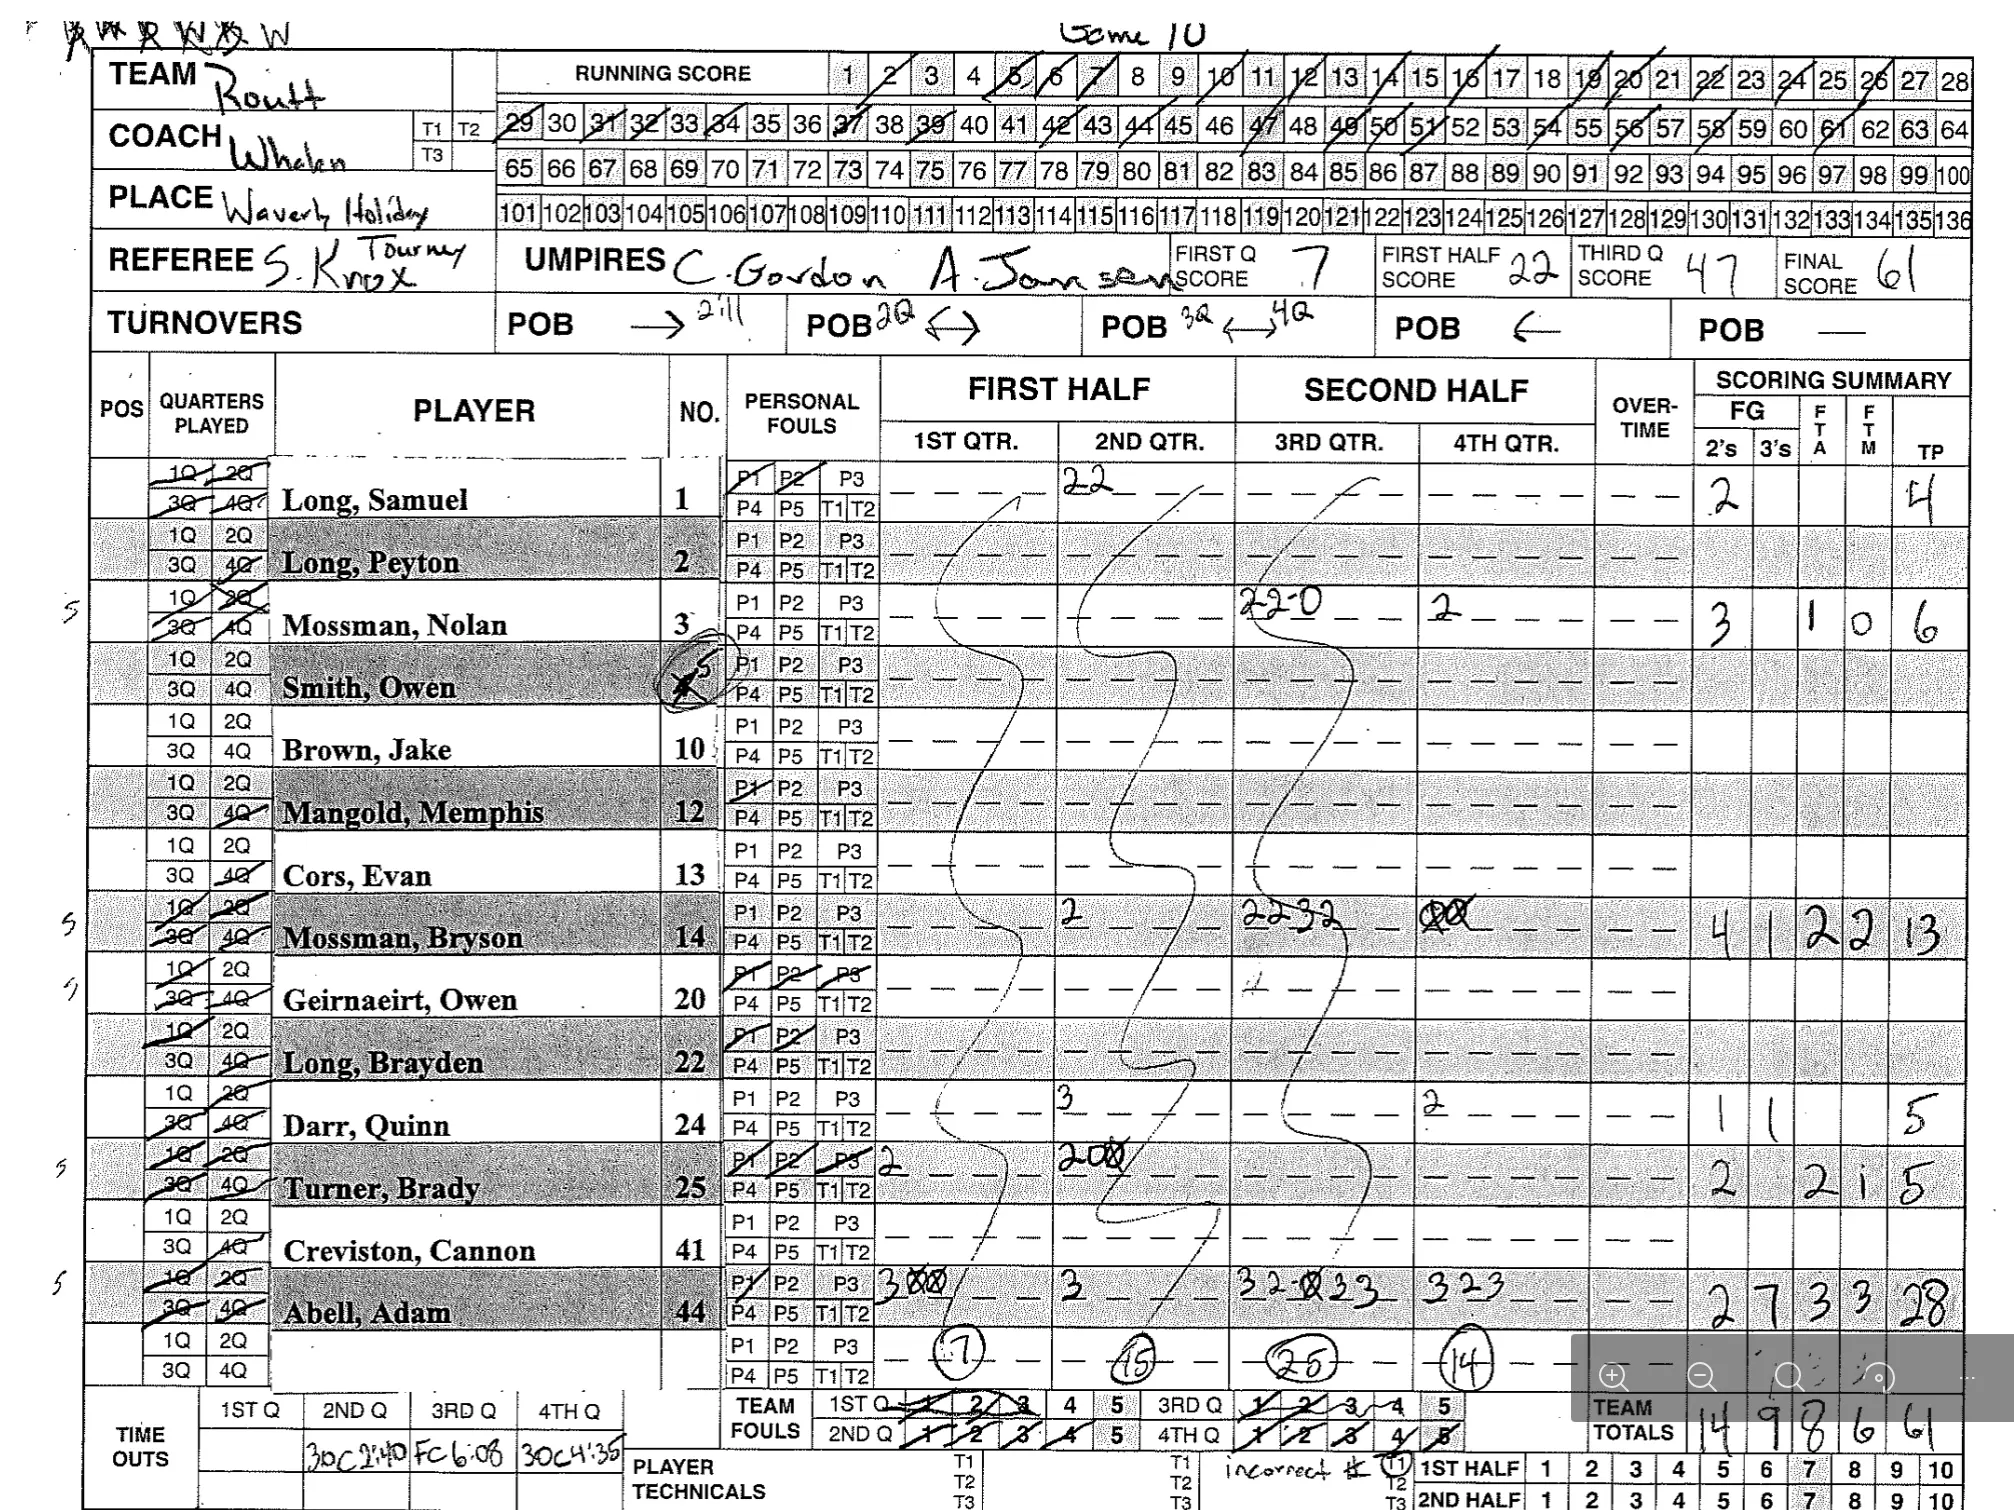 Game 10
TEAM Routt RUNNING SCORE 1 2 3 4 5 6 7 8 9 10 11 12 13 14 15 16 17 18 19 20 21 22 23 24 25 26 27 28
COACH Whalen T1 T2 T3 29 30 31 32 33 34 35 36 37 38 39 40 41 42 43 44 45 46 47 48 49 50 51 52 53 54 55 56 57 58 59 60 61 62 63 64
65 66 67 68 69 70 71 72 73 74 75 76 77 78 79 80 81 82 83 84 85 86 87 88 89 90 91 92 93 94 95 96 97 98 99 100
PLACE Waverly Holiday Tourney 101 102 103 104 105 106 107 108 109 110 111 112 113 114 115 116 117 118 119 120 121 122 123 124 125 126 127 128 129 130 131 132 133 134 135 136
REFEREE S. Knox UMPIRES C. Gordon A. Jansen FIRST Q SCORE 7 FIRST HALF SCORE 22 THIRD Q SCORE 47 FINAL SCORE 61
TURNOVERS POB → 2:11 POB 2Q ↔ POB 3Q ↔ 4Q POB ← POB —
POS QUARTERS PLAYED PLAYER NO. PERSONAL FOULS FIRST HALF SECOND HALF OVER-TIME SCORING SUMMARY
1ST QTR. 2ND QTR. 3RD QTR. 4TH QTR. FG 2's 3's FTA FTM TP
1Q 2Q P1 P2 P3 22
3Q 4Q Long, Samuel 1 P4 P5 T1 T2 2 4
1Q 2Q P1 P2 P3
3Q 4Q Long, Peyton 2 P4 P5 T1 T2
5 1Q 2Q P1 P2 P3 22-0 2
3Q 4Q Mossman, Nolan 3 P4 P5 T1 T2 3 1 0 6
1Q 2Q 5 P1 P2 P3
3Q 4Q Smith, Owen P4 P5 T1 T2
1Q 2Q P1 P2 P3
3Q 4Q Brown, Jake 10 P4 P5 T1 T2
1Q 2Q P1 P2 P3
3Q 4Q Mangold, Memphis 12 P4 P5 T1 T2
1Q 2Q P1 P2 P3
3Q 4Q Cors, Evan 13 P4 P5 T1 T2
5 1Q 2Q P1 P2 P3 2 2232 00
3Q 4Q Mossman, Bryson 14 P4 P5 T1 T2 4 1 2 2 13
5 1Q 2Q P1 P2 P3
3Q 4Q Geirnaeirt, Owen 20 P4 P5 T1 T2
1Q 2Q P1 P2 P3
3Q 4Q Long, Brayden 22 P4 P5 T1 T2
1Q 2Q P1 P2 P3 3 2
3Q 4Q Darr, Quinn 24 P4 P5 T1 T2 1 1 5
5 1Q 2Q P1 P2 P3 2 200
3Q 4Q Turner, Brady 25 P4 P5 T1 T2 2 2 1 5
1Q 2Q P1 P2 P3
3Q 4Q Creviston, Cannon 41 P4 P5 T1 T2
5 1Q 2Q P1 P2 P3 300 3 32-033 323
3Q 4Q Abell, Adam 44 P4 P5 T1 T2 2 7 3 3 28
1Q 2Q P1 P2 P3 7 15 25 14
3Q 4Q P4 P5 T1 T2
TIME OUTS 1ST Q 2ND Q 3RD Q 4TH Q TEAM FOULS 1ST Q 1 2 3 4 5 3RD Q 1 2 3 4 5 TEAM TOTALS 14 9 8 6 61
30C 2:40 FC 6:08 30C 4:35 2ND Q 1 2 3 4 5 4TH Q 1 2 3 4 5
PLAYER TECHNICALS T1 T2 T3 T1 T2 T3 incorrect # T1 T2 T3 1ST HALF 1 2 3 4 5 6 7 8 9 10
2ND HALF 1 2 3 4 5 6 7 8 9 10